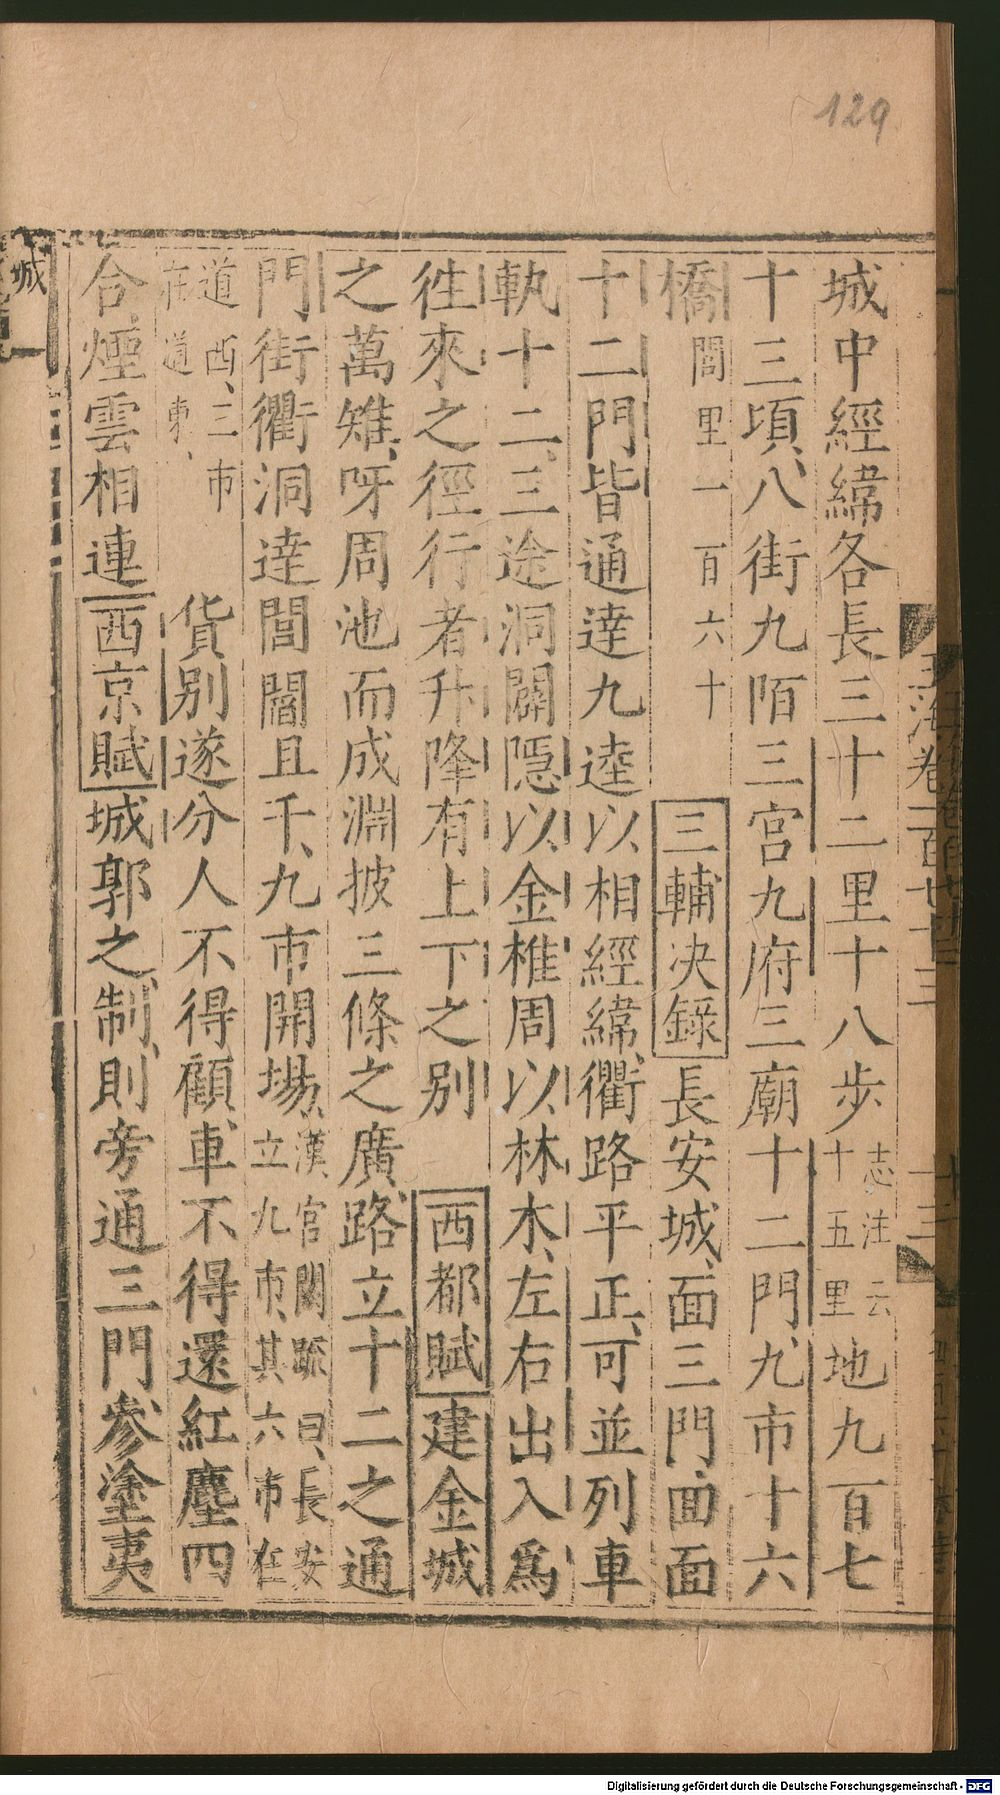 129
城中經緯各長三十二里十八步志注云十五里地九百七
十三頃八街九陌三宮九府三廟十二門九市十六
橋閭里一百六十三輔决錄長安城面三門面面
十二門皆通達九逵以相經緯衢路平正可並列車
軌十二三途洞闢隱以金椎周以林木左右出入爲
徃來之徑行者升降有上下之别西都賦建金城
之萬雉呀周池而成淵披三條之廣路立十二之通
門街衢洞達閭閻且千九市開場漢官闕䟽曰長安立九市其六市在
道西三市在道東貨别遂分人不得顧車不得還紅塵四
合煙雲相連西京賦城郭之制則旁通三門參塗夷
城
玉海卷一百七十三
十三
Digitalisierung gefördert durch die Deutsche Forschungsgemeinschaft - DFG